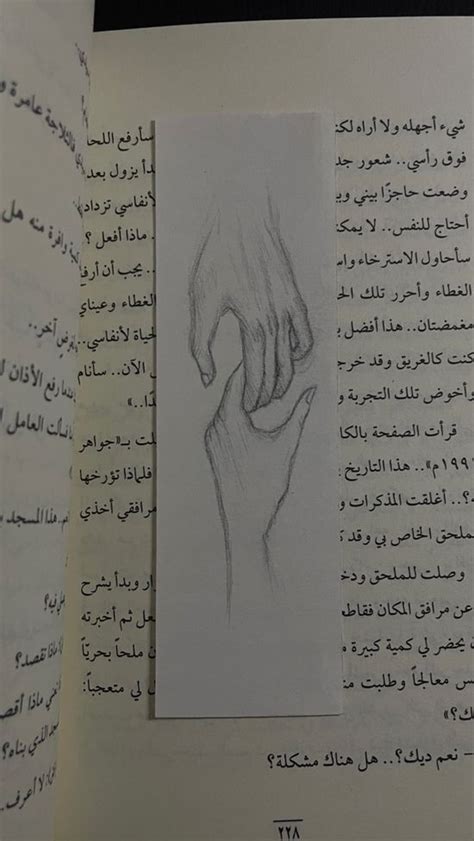 شيء أجهله ولا أراه لكن سأرفع اللحا
فوق رأسي.. شعور جد بدأ يزول بعد
وضعت حاجزًا بيني وبي لأنفاسي تزداد
أحتاج للنفس.. لا يمكن .. ماذا أفعل ؟
سأحاول الاسترخاء واس .. يجب أن أرف
الغطاء وأحرر تلك الح الغطاء وعيناي
مغمضتان.. هذا أفضل ب لحياة لأنفاسي..
كنت كالغريق وقد خرج الآن.. سأنام
وأخوض تلك التجربة و ـذا..»
قرأت الصفحة بالكا لت بـ«جواهر
١٩٩١م».. هذا التاريخ فلماذا تؤرخها
ه؟.. أغلقت المذكرات و مرافقي أخذي
لملحق الخاص بي وقد ك
وصلت للملحق ودخ ار وبدأ يشرح
عن مرافق المكان فقاط عل ثم أخبرته
ن يحضر لي كمية كبيرة م ملحاً بحريّاً
س معالجاً وطلبت من ل لي متعجباً:
ك؟»
- نعم ديك؟.. هل هناك مشكلة؟
٢٢٨
فالثلاجة عامرة و
وافرة منه هل
آخر..
رفع الأذان ل
سألت العامل
هذا المسجد ب
فيه؟
ماذا تقصد؟
ماذا أقص
الذي بناه؟
لا أعرف.